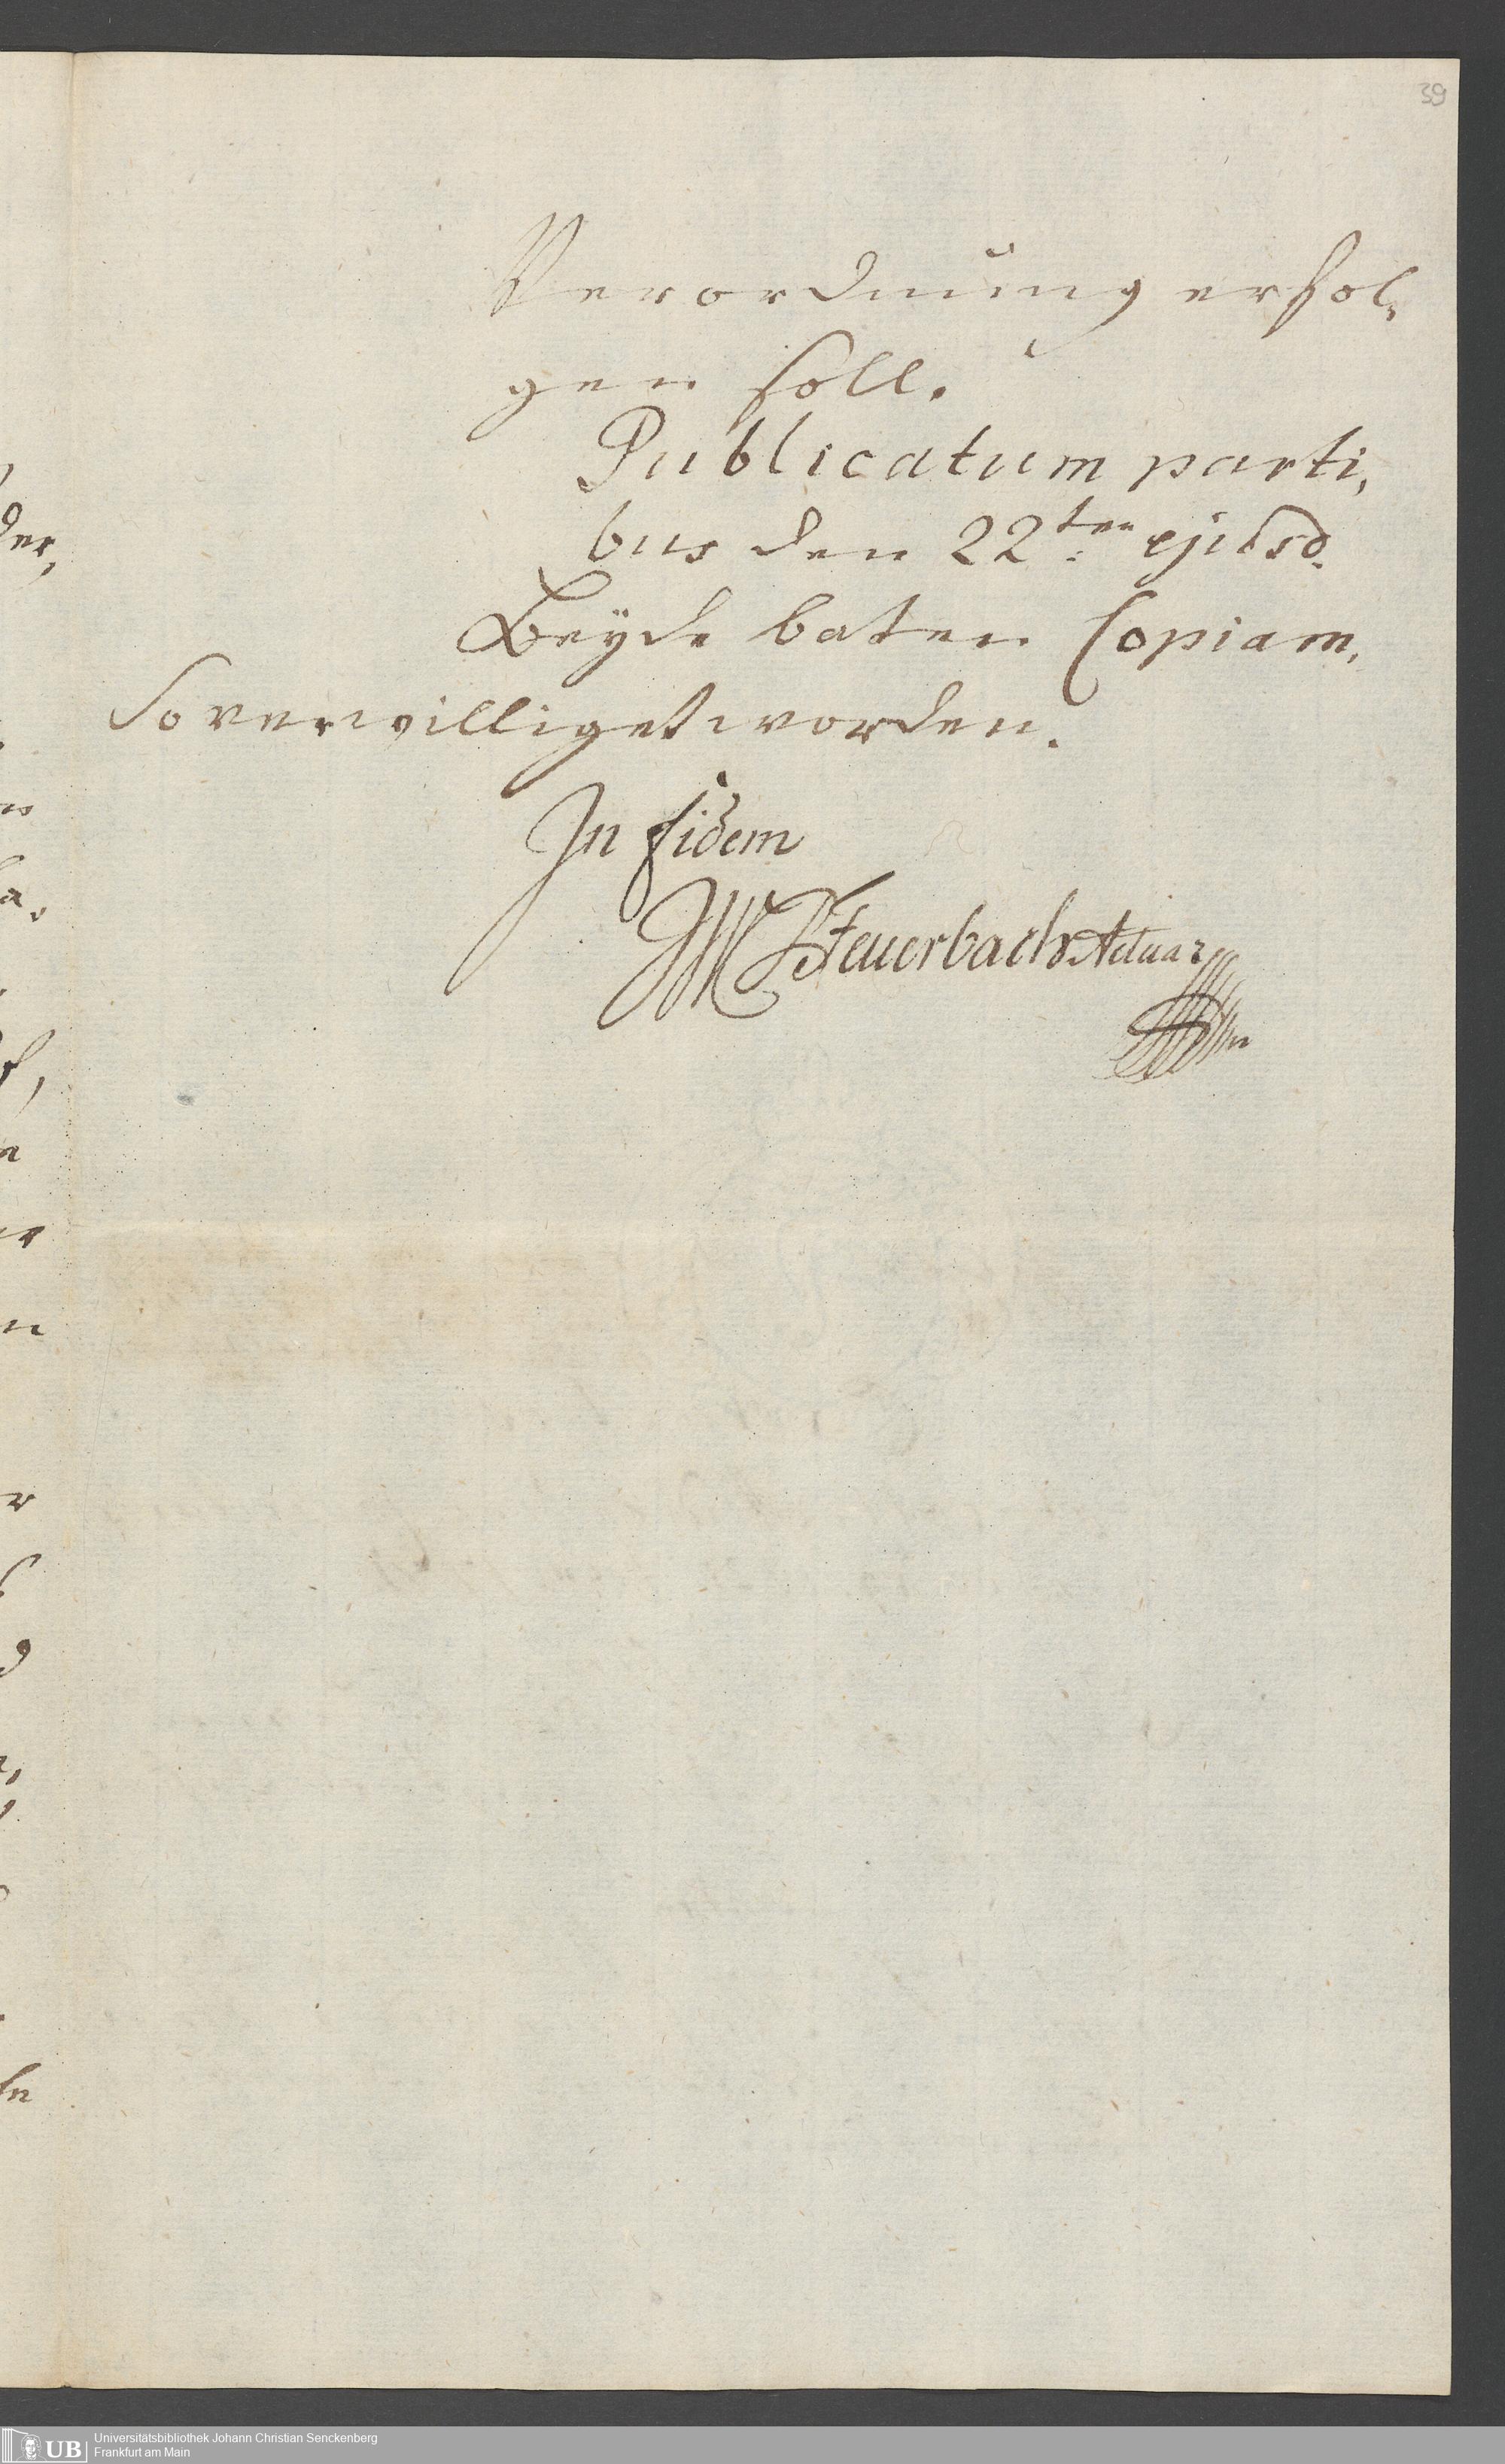 39
Verordnung erfol,
gen soll.
Publicatum parti,
bus den 22ten ejusd.
Beyde baten Copiam,
So verwilliget worden.
In fidem
Feuerbach Actuar
der,
UB
Universitätsbibliothek Johann Christian Senckenberg
Frankfurt am Main